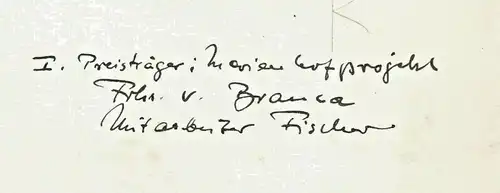 I. Preisträger: Marienhofprojekt
Frhr. v. Branca
Mitarbeiter Fischer